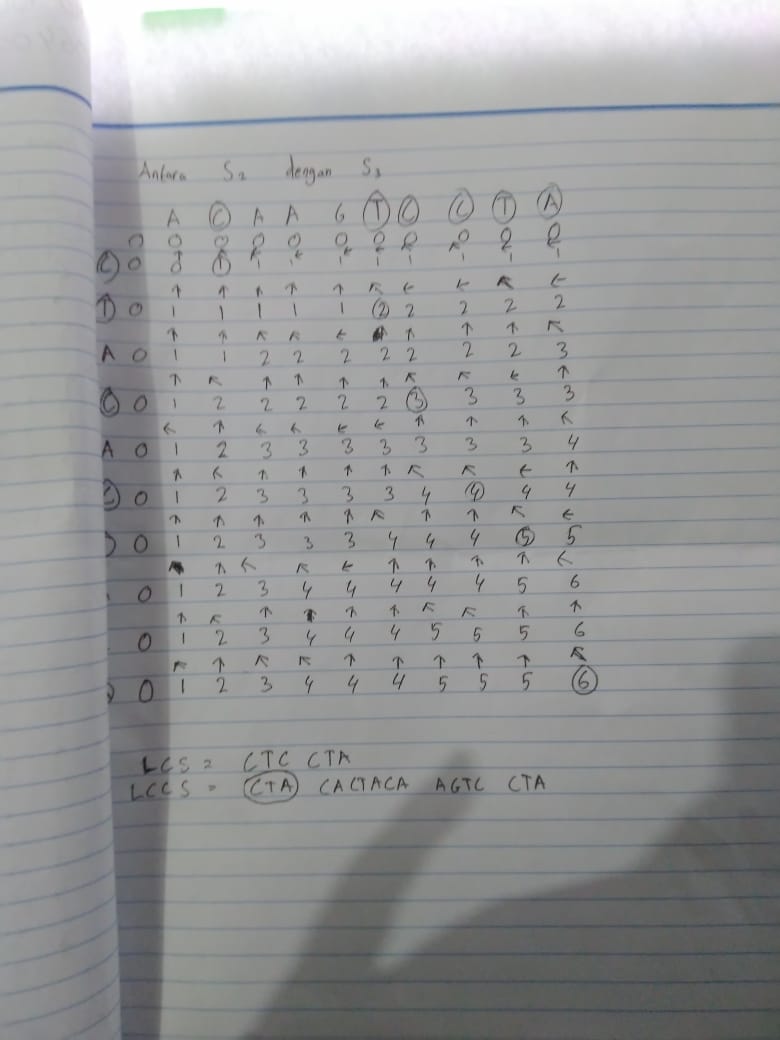 Antara S2 dengan S3
A C A A G T C C T A
0 0 0 0 0 0 0 0 0 0 0
C 0 0 1 1 1 1 1 1 1 1 1
↑ ↑ ↖ ↑ ↑ ↖ ← ← ↖ ←
T 0 1 1 1 1 1 2 2 2 2 2
↑ ↑ ↖ ↖ ← ↑ ↑ ↑ ↑ ↖
A 0 1 1 2 2 2 2 2 2 2 3
↑ ↖ ↑ ↑ ↑ ↑ ↖ ↖ ← ↑
C 0 1 2 2 2 2 2 3 3 3 3
← ↑ ↖ ↖ ← ← ↑ ↑ ↑ ↖
A 0 1 2 3 3 3 3 3 3 3 4
↑ ↖ ↑ ↑ ↑ ↑ ↖ ↖ ← ↑
C 0 1 2 3 3 3 3 4 4 4 4
↑ ↑ ↑ ↑ ↑ ↖ ↑ ↑ ↖ ←
0 1 2 3 3 3 4 4 4 5 5
↑ ↖ ↖ ← ↑ ↑ ↑ ↑ ↖
0 1 2 3 4 4 4 4 4 5 6
↑ ↖ ↑ ↑ ↑ ↑ ↖ ↖ ↑ ↑
0 1 2 3 4 4 4 5 5 5 6
↖ ↑ ↖ ↖ ↑ ↑ ↑ ↑ ↑ ↖
0 1 2 3 4 4 4 5 5 5 6
LCS = CTC CTA
LCCS = CTA CACTACA AGTC CTA